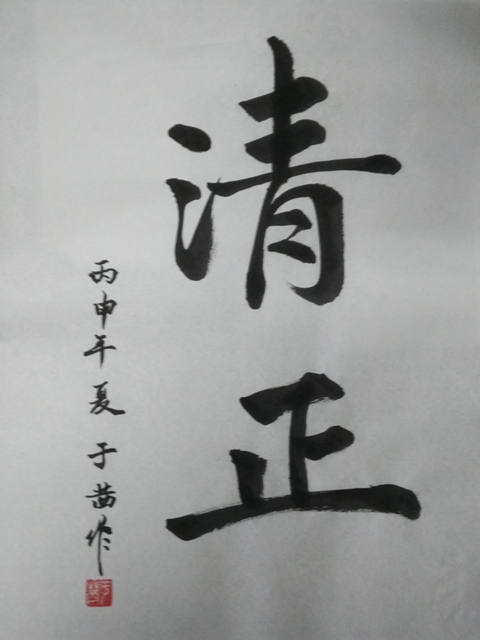 清正
丙申年夏于茜作